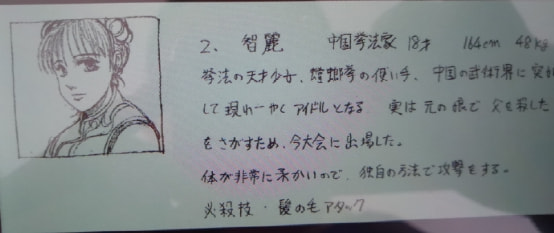 2. 智麗 中国拳法家 18才 164cm 48kg
拳法の天才少女、螳螂拳の使い手、中国の武術界に突
して現れ一やくアイドルとなる 実は元の娘で父を殺した
をさがすため、今大会に出場した。
体が非常に柔かいので、独自の方法で攻撃をする。
必殺技・髪の毛アタック